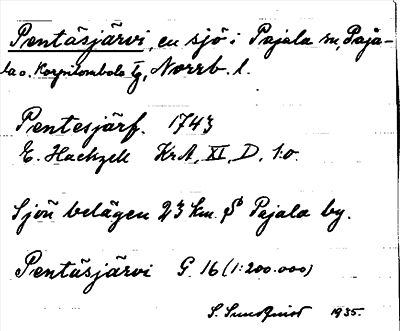 Pentäsjärvi, en sjö i Pajala sn, Paja-
la o. Korpilombolo tg, Norrb. l.
Pentesjärf. 1743
E. Hackzell KrA, XI, D, 1:o.
Sjön belägen 23 km. S Pajala by.
Pentäsjärvi G. 16 (1:200.000)
S. Sundquist 1935.